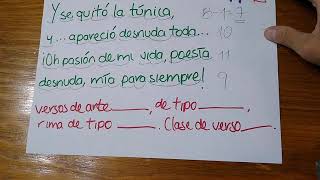 Y se quitó la túnica, 8-1=7
y... apareció desnuda toda... 10
¡Oh pasión de mi vida, poesía 11
desnuda, mía para siempre! 9
versos de arte ____, de tipo ____,
rima de tipo ____. Clase de verso ____.